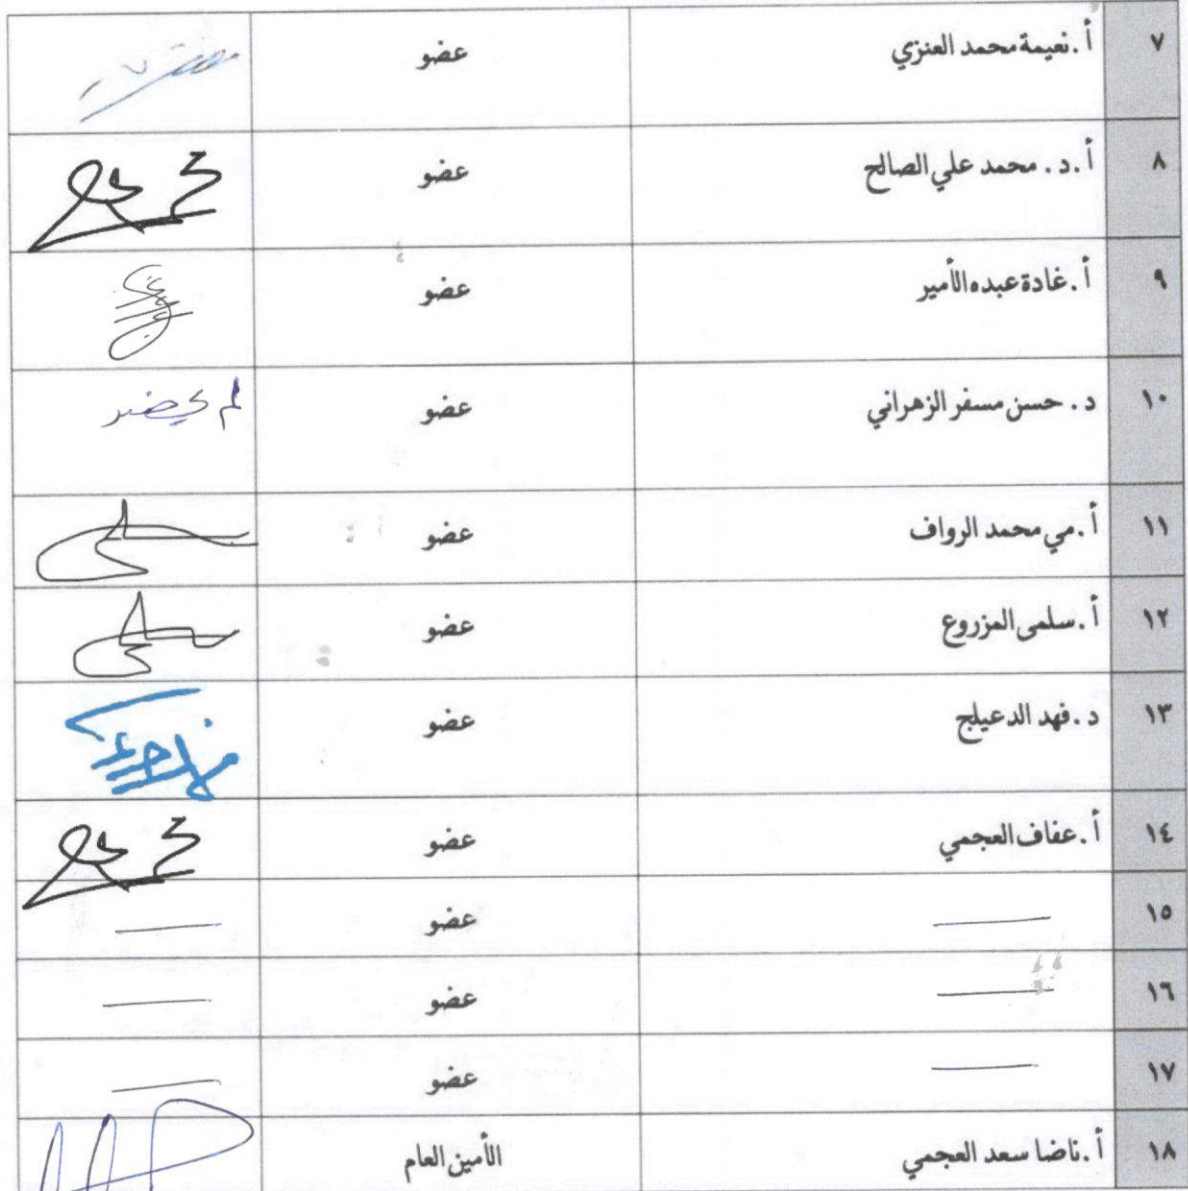 ٧ أ.نعيمة محمد العنزي عضو
٨ أ.د. محمد علي الصالح عضو
٩ أ.غادة عبده الأمير عضو
١٠ د. حسن مسفر الزهراني عضو لم يحضر
١١ أ.مي محمد الرواف عضو
١٢ أ.سلمى المزروع عضو
١٣ د.فهد الدعيلج عضو
١٤ أ.عفاف العجمي عضو
١٥ عضو
١٦ عضو
١٧ عضو
١٨ أ.ناضا سعد العجمي الأمين العام